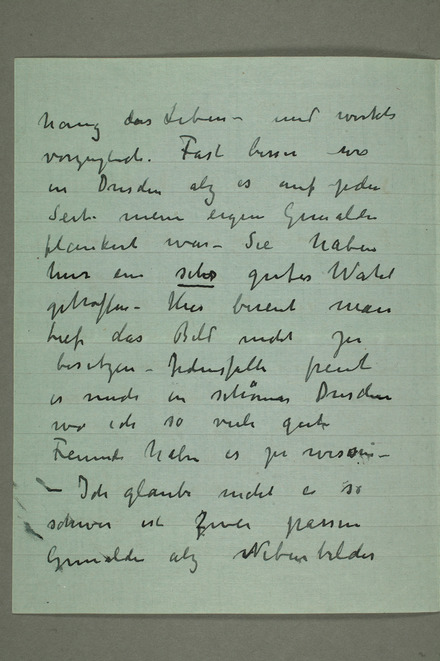 hang das Leben – und wirkt
vorzüglich. Fast besser wo
in Dresden als es auf jeder
Seite meine eigen Gemälde
flankiert war – Sie haben
hier ein sehr gutes Wahl
getroffen – Hier bereut man
tief das Bild nicht zu
besitzen – Jedenfalls freut
es mich in schönes Dresden
wo ich so viele gute
Freunde habe es zu wissen –
– Ich glaube nicht es so
schwer ist Zwei passen
Gemälde als Nebenbilder